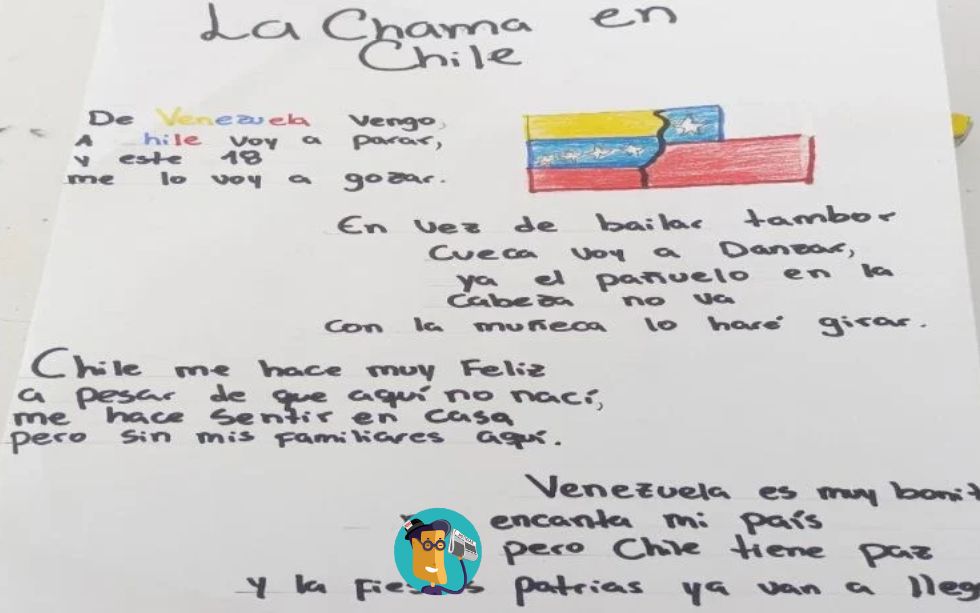 La Chama en
Chile
De Venezuela vengo,
A hile voy a parar,
y este 18
me lo voy a gozar.
En vez de bailar tambor
Cueca voy a Danzar,
ya el pañuelo en la
Cabeza no va
con la muñeca lo haré girar.
Chile me hace muy Feliz
a pesar de que aquí no nací,
me hace sentir en casa
pero sin mis familiares aquí.
Venezuela es muy bonit
encanta mi país
pero Chile tiene paz
y la patrias ya van a lleg